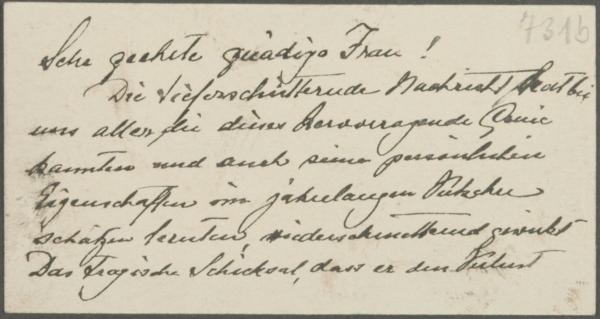 731b
Sehr geehrte gnädige Frau!
Die tieferschütternde Nachricht hat bei
uns allen, die dieses hervorragende Genie
kannten und auch seine persönlichen
Eigenschaften im jahrelangen
schätzen lernten, niederschmetternd gewirkt
Das tragische Schicksal, dass er den